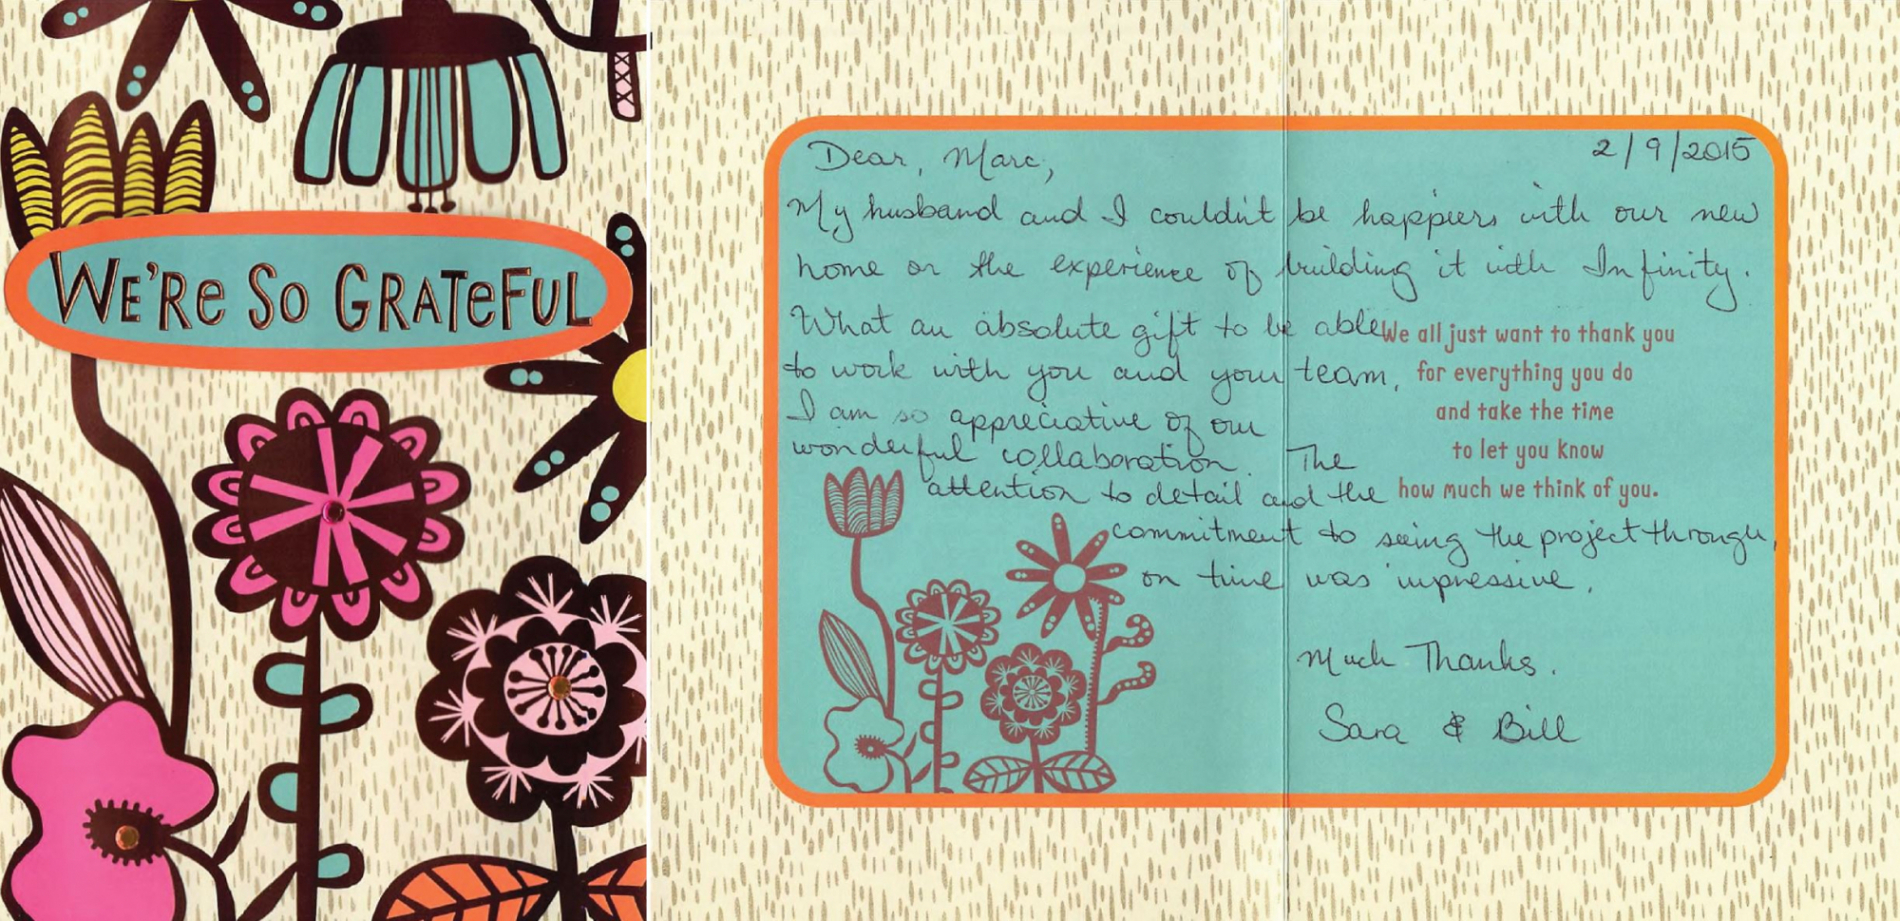 WE'Re So GRATeFUL
2/9/2015
Dear, Marc,
My husband and I couldn't be happiers with our new
home or the experience of building it with Infinity.
What an absolute gift to be able
to work with you and your team,
I am so appreciative of our
wonderful collaboration. The
attention to detail and the
commitment to seeing the project through,
on time was impressive.
Much Thanks.
Sara & Bill
We all just want to thank you
for everything you do
and take the time
to let you know
how much we think of you.